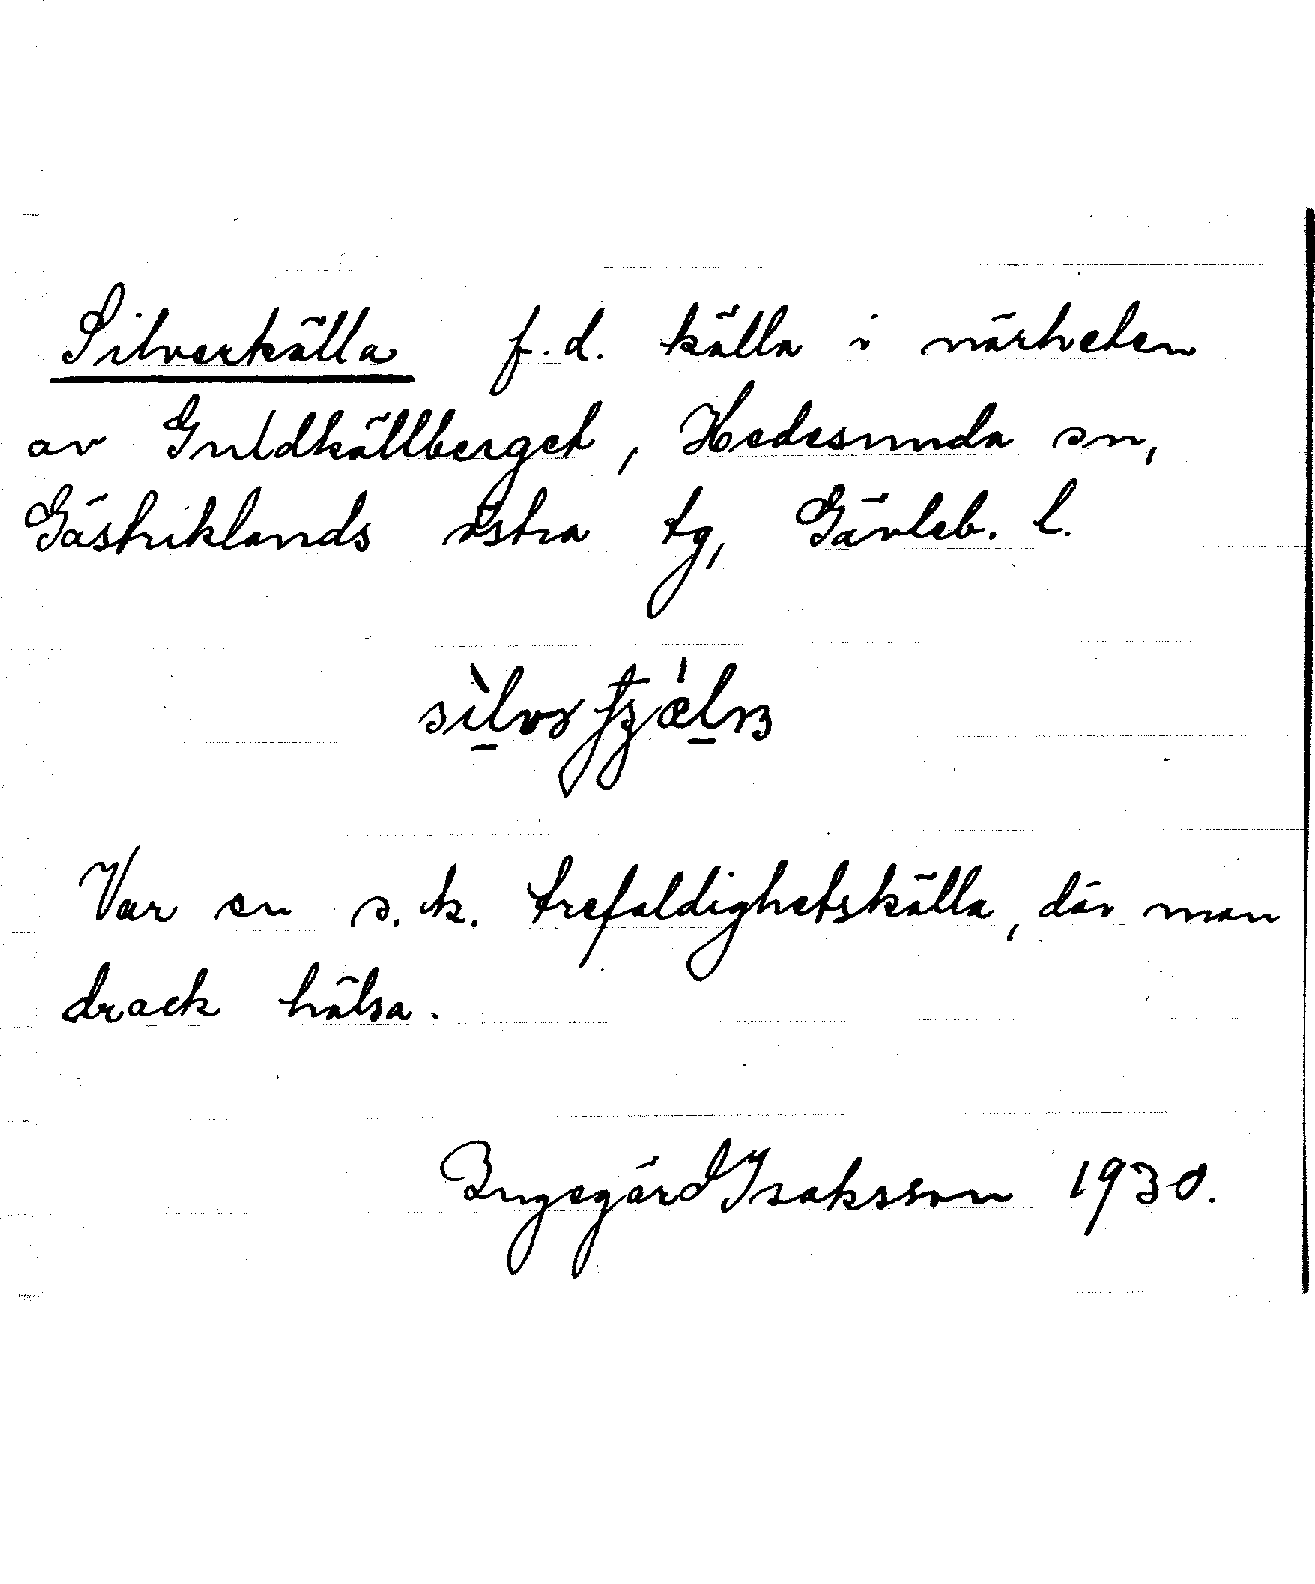 Silverkälla f.d. källa i närheten
av Guldkällberget, Hedesunda sn,
Gästriklands östra tg, Gävleb. l.
Var en s.k. trefaldighetskälla, där man
drack hälsa.
Ingegärd Isaksson 1930.